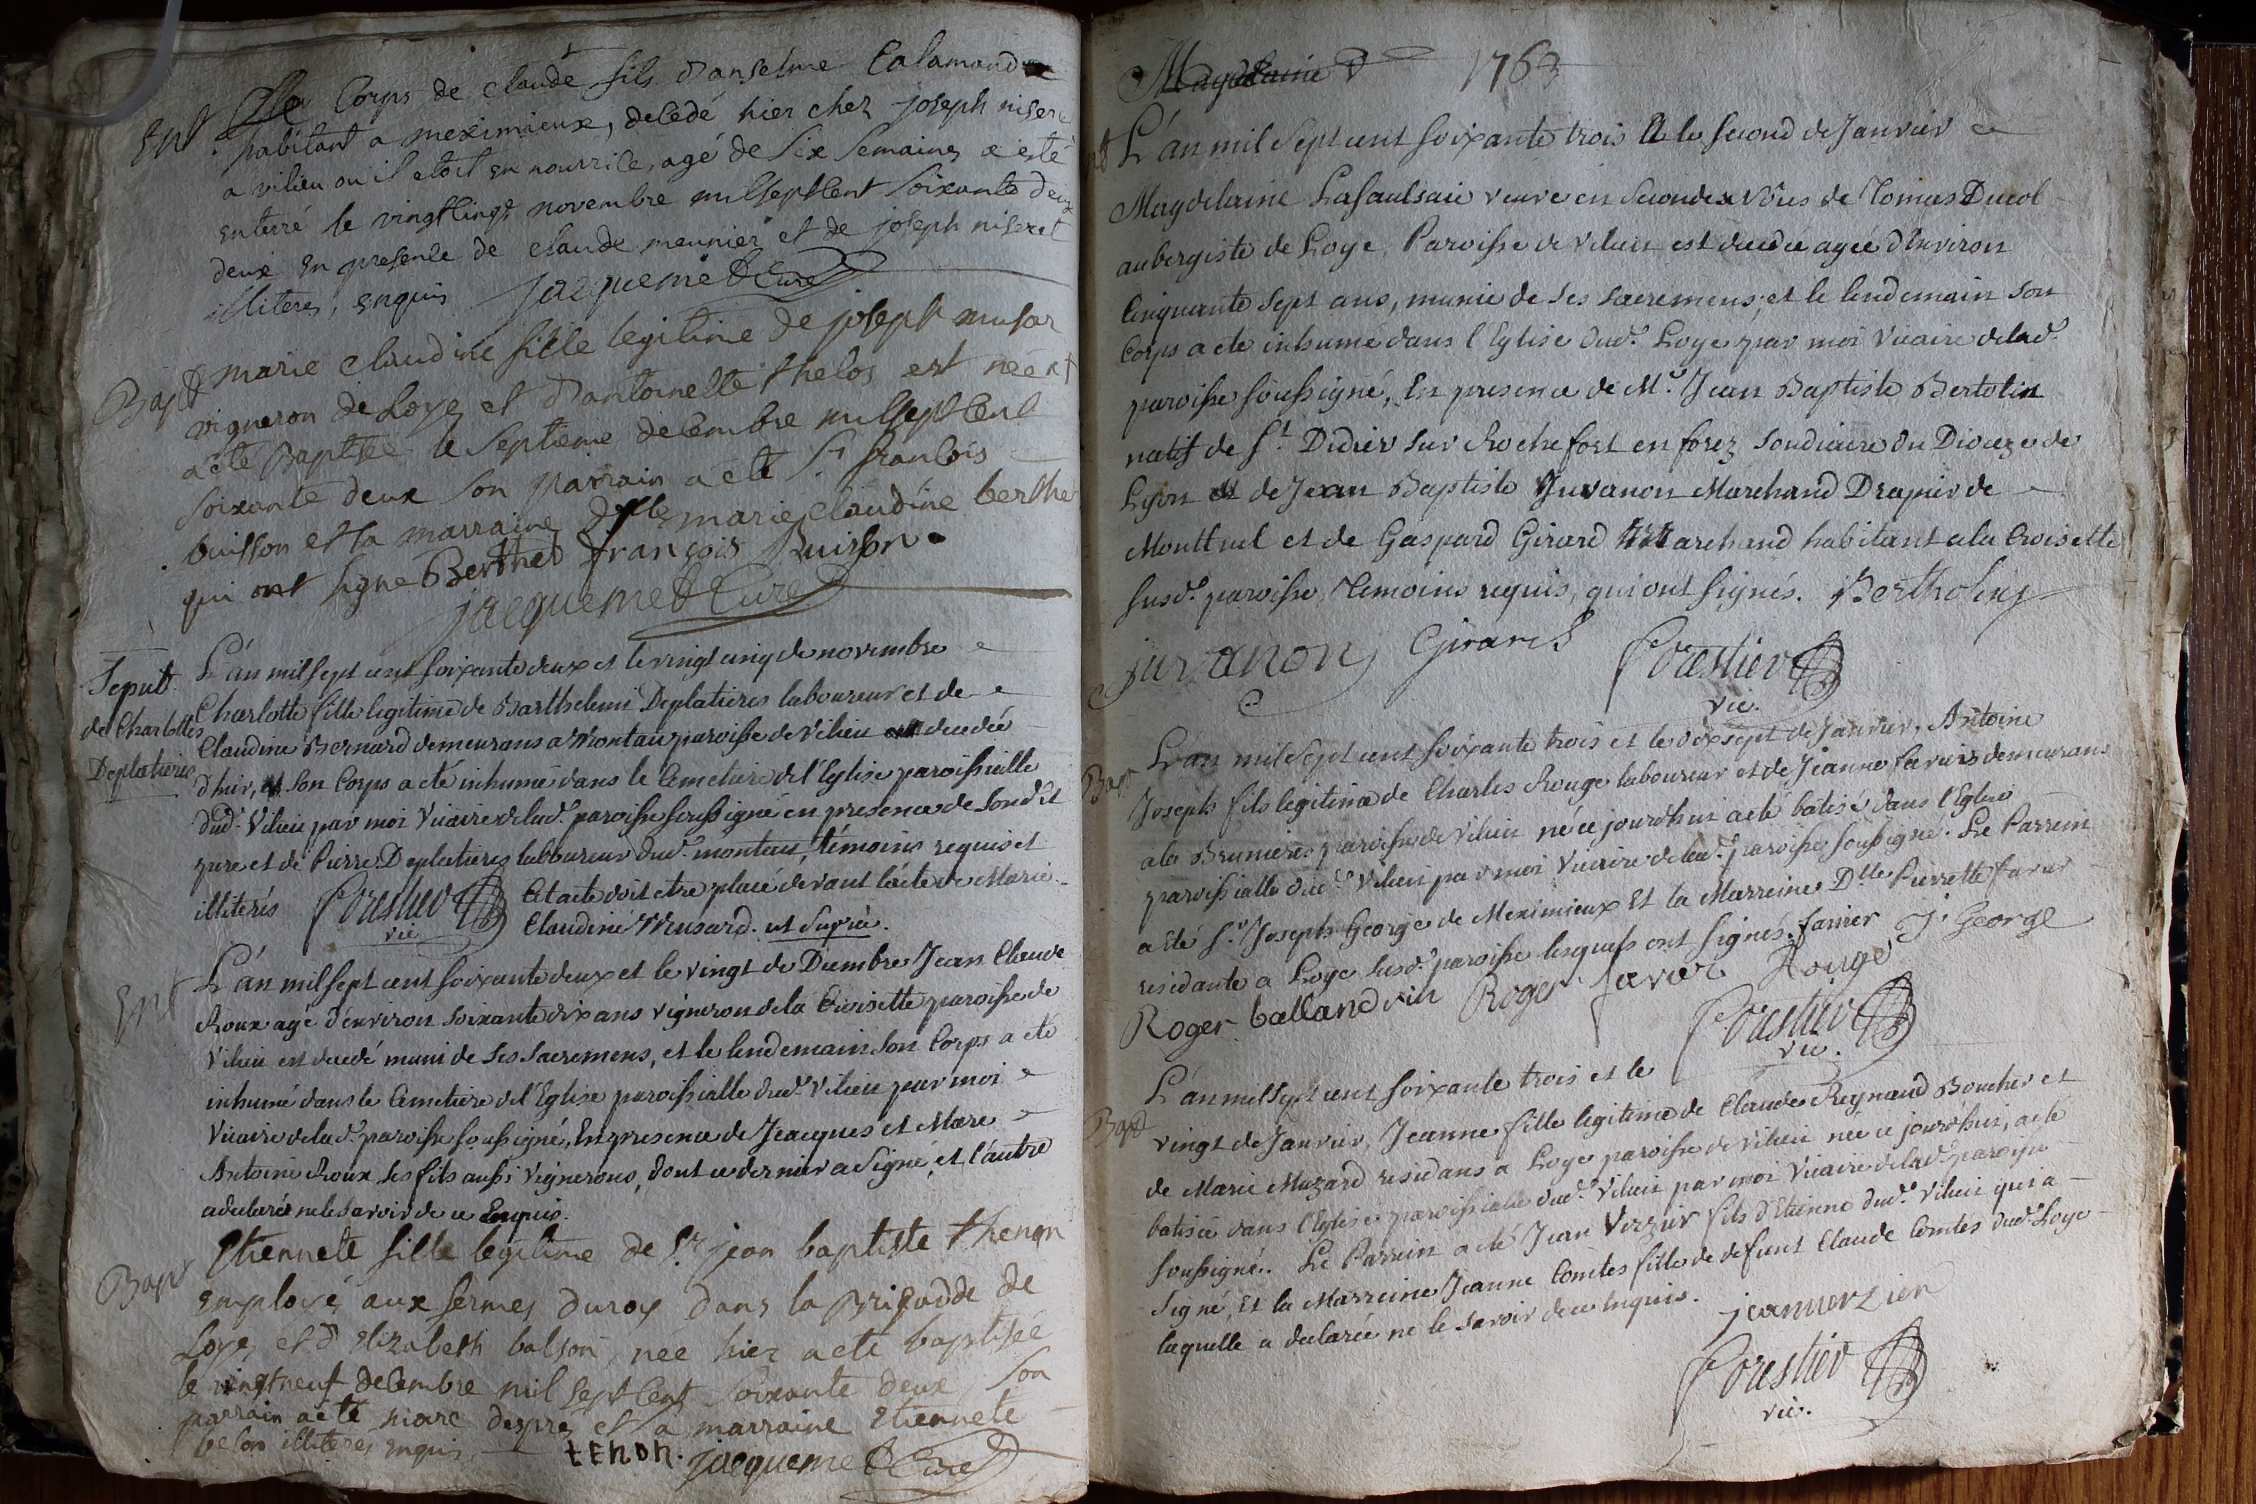 Ent. Le Corps de claude fils d'anselme Calamand
habitant a meximieux, decedé hier chez joseph niseret
a vilieu ou il etoit en nourrice, agé de six semaines a esté
enterré le vingtcinq novembre milseptcent soixante deux
deux en presence de claude meunier et de joseph niseret
illiteres, enquis jacquemet Curé
Bapt marie claudine fille legitime de joseph musar
vigneron de Loye et d'antoinette thelos est née et
a eté Baptisée le septieme decembre milseptcent
soixante deux son parrain a eté Sr francois
buisson et sa marraine Dlle marie claudine berthet
qui ont signe Berthet françois Buisson
jacquemet Curé
Sepult. de Charlotte Deplatieres
L'an mil sept cent soixante deux et le vingt cinq de novembre
Charlotte fille legitime de Barthelemi Deplatieres laboureur et de
Claudine Bernard demeurans a Montau paroisse de Vilieu decedée
d'hier, son Corps a eté inhumé dans le Cemetiere de l'Eglise paroissialle
dud. Vilieu par moi Vicaire de lad. paroisse soussigné en presence de sond.
pere et de Pierre Deplatieres laboureur dud. montau, témoins requis et
illiterés Forestier vic. Cet acte doit etre placé devant l'acte de Marie
Claudine Musard. ut supra.
Ent L'an mil sept cent soixante deux et le vingt de Decembre Jean Claude
Roux agé d'environ soixante dix ans vigneron de la Croisette paroisse de
Vilieu est decedé muni de ses sacremens, et le lendemain son Corps a eté
inhumé dans le Cemetiere de l'Eglise paroissialle dud. Vilieu par moi
Vicaire de lad. paroisse soussigné, En presence de Jeacques et Marc
Antoine Roux ses fils aussi vignerons, dont ce dernier a signé, et l'autre
a declaré ne le savoir de ce Enquis.
Bapt Etiennete fille legitime de Sr jean baptiste thenon
employé aux fermes du roy dans la Brigadde de
Loye et d'Elizabeth balson, née hier a eté baptisée
le vingtneuf decembre mil sept Cent soixante deux son
parrain a eté marc despre et sa marraine Etiennete
belon illiteres enquis. tenon. jacquemet Curé
Magdelaine 1763
L'an mil sept cent soixante trois et le second de Janvier
Magdelaine Lasaulsaie veuve en secondes Nôces de Tomas Ducol
aubergiste de Loye, Paroisse de Vilieu est decedée agée d'Environ
Cinquante sept ans, munie de ses sacremens, et le lendemain son
Corps a eté inhumé dans l'Eglise dud. Loye par moi Vicaire de lad.
paroisse soussigné, En presence de Mr Jean Baptiste Bertolin
natif de St. Didier sur Rochefort en forez soudiacre du Dioceze de
Lyon de Jean Baptiste Juvanon Marchand Drapier de
Montluel et de Gaspard Girard Marchand habitant a la Croisette
susd. paroisse, Temoins requis, qui ont signés. Bertholin
juvanon Girard Forestier
vic.
Bapt L'an mil sept cent soixante trois et le dix sept de Janvier, Antoine
Joseph fils legitime de Charles Rouge laboureur et de Jeanne favier demeurans
a la Brunieres paroisse de Vilieu né ce jourd'hui a eté batisé dans l'Eglise
paroissialle dud. Vilieu par moi Vicaire de lad. paroisse soussigné. Le Parrein
a eté Sr Joseph George de Meximieux Et la Marreine Dlle Pierrette favier
residante a Loye susd. paroisse lesquels ont signés. favier J. George
Roger ballandrin Roger favier Rouge
Forestier
vic.
Bapt L'an mil sept cent soixante trois et le
vingt de Janvier, Jeanne fille legitime de Claude Reynaud Boucher et
de Marie Muzard residans a Loye paroisse de Vilieu née ce jourd'hui, a eté
batisée dans l'Eglise paroissialle dud. Vilieu par moi Vicaire de lad. paroisse
soussigné. Le Parrein a eté Jean Verzier fils d'Etienne dud. Vilieu qui a
signé, Et la Marreine Jeanne Comtes fille de defunt Claude Comtes dud. Loye
laquelle a declarée ne le savoir de ce Enquis. jean verzier
Forestier
vic.